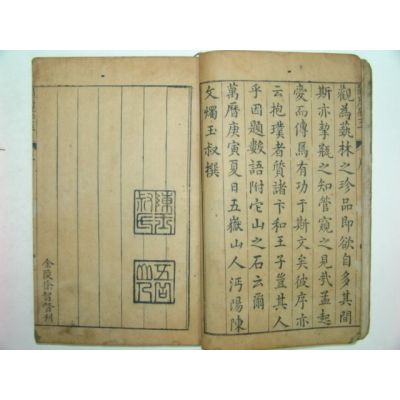 觀為蓺林之珍品即欲自多其間
斯亦挈瓶之知管窺之見哉孟起
愛而傳焉有功于斯文矣彼序亦
云抱璞者質諸卞和王子豈其人
乎因題數語附它山之石云爾
萬曆庚寅夏日五嶽山人沔陽陳
文燭玉叔撰
陳玉叔氏
五岳山人
金陵徐智督刊